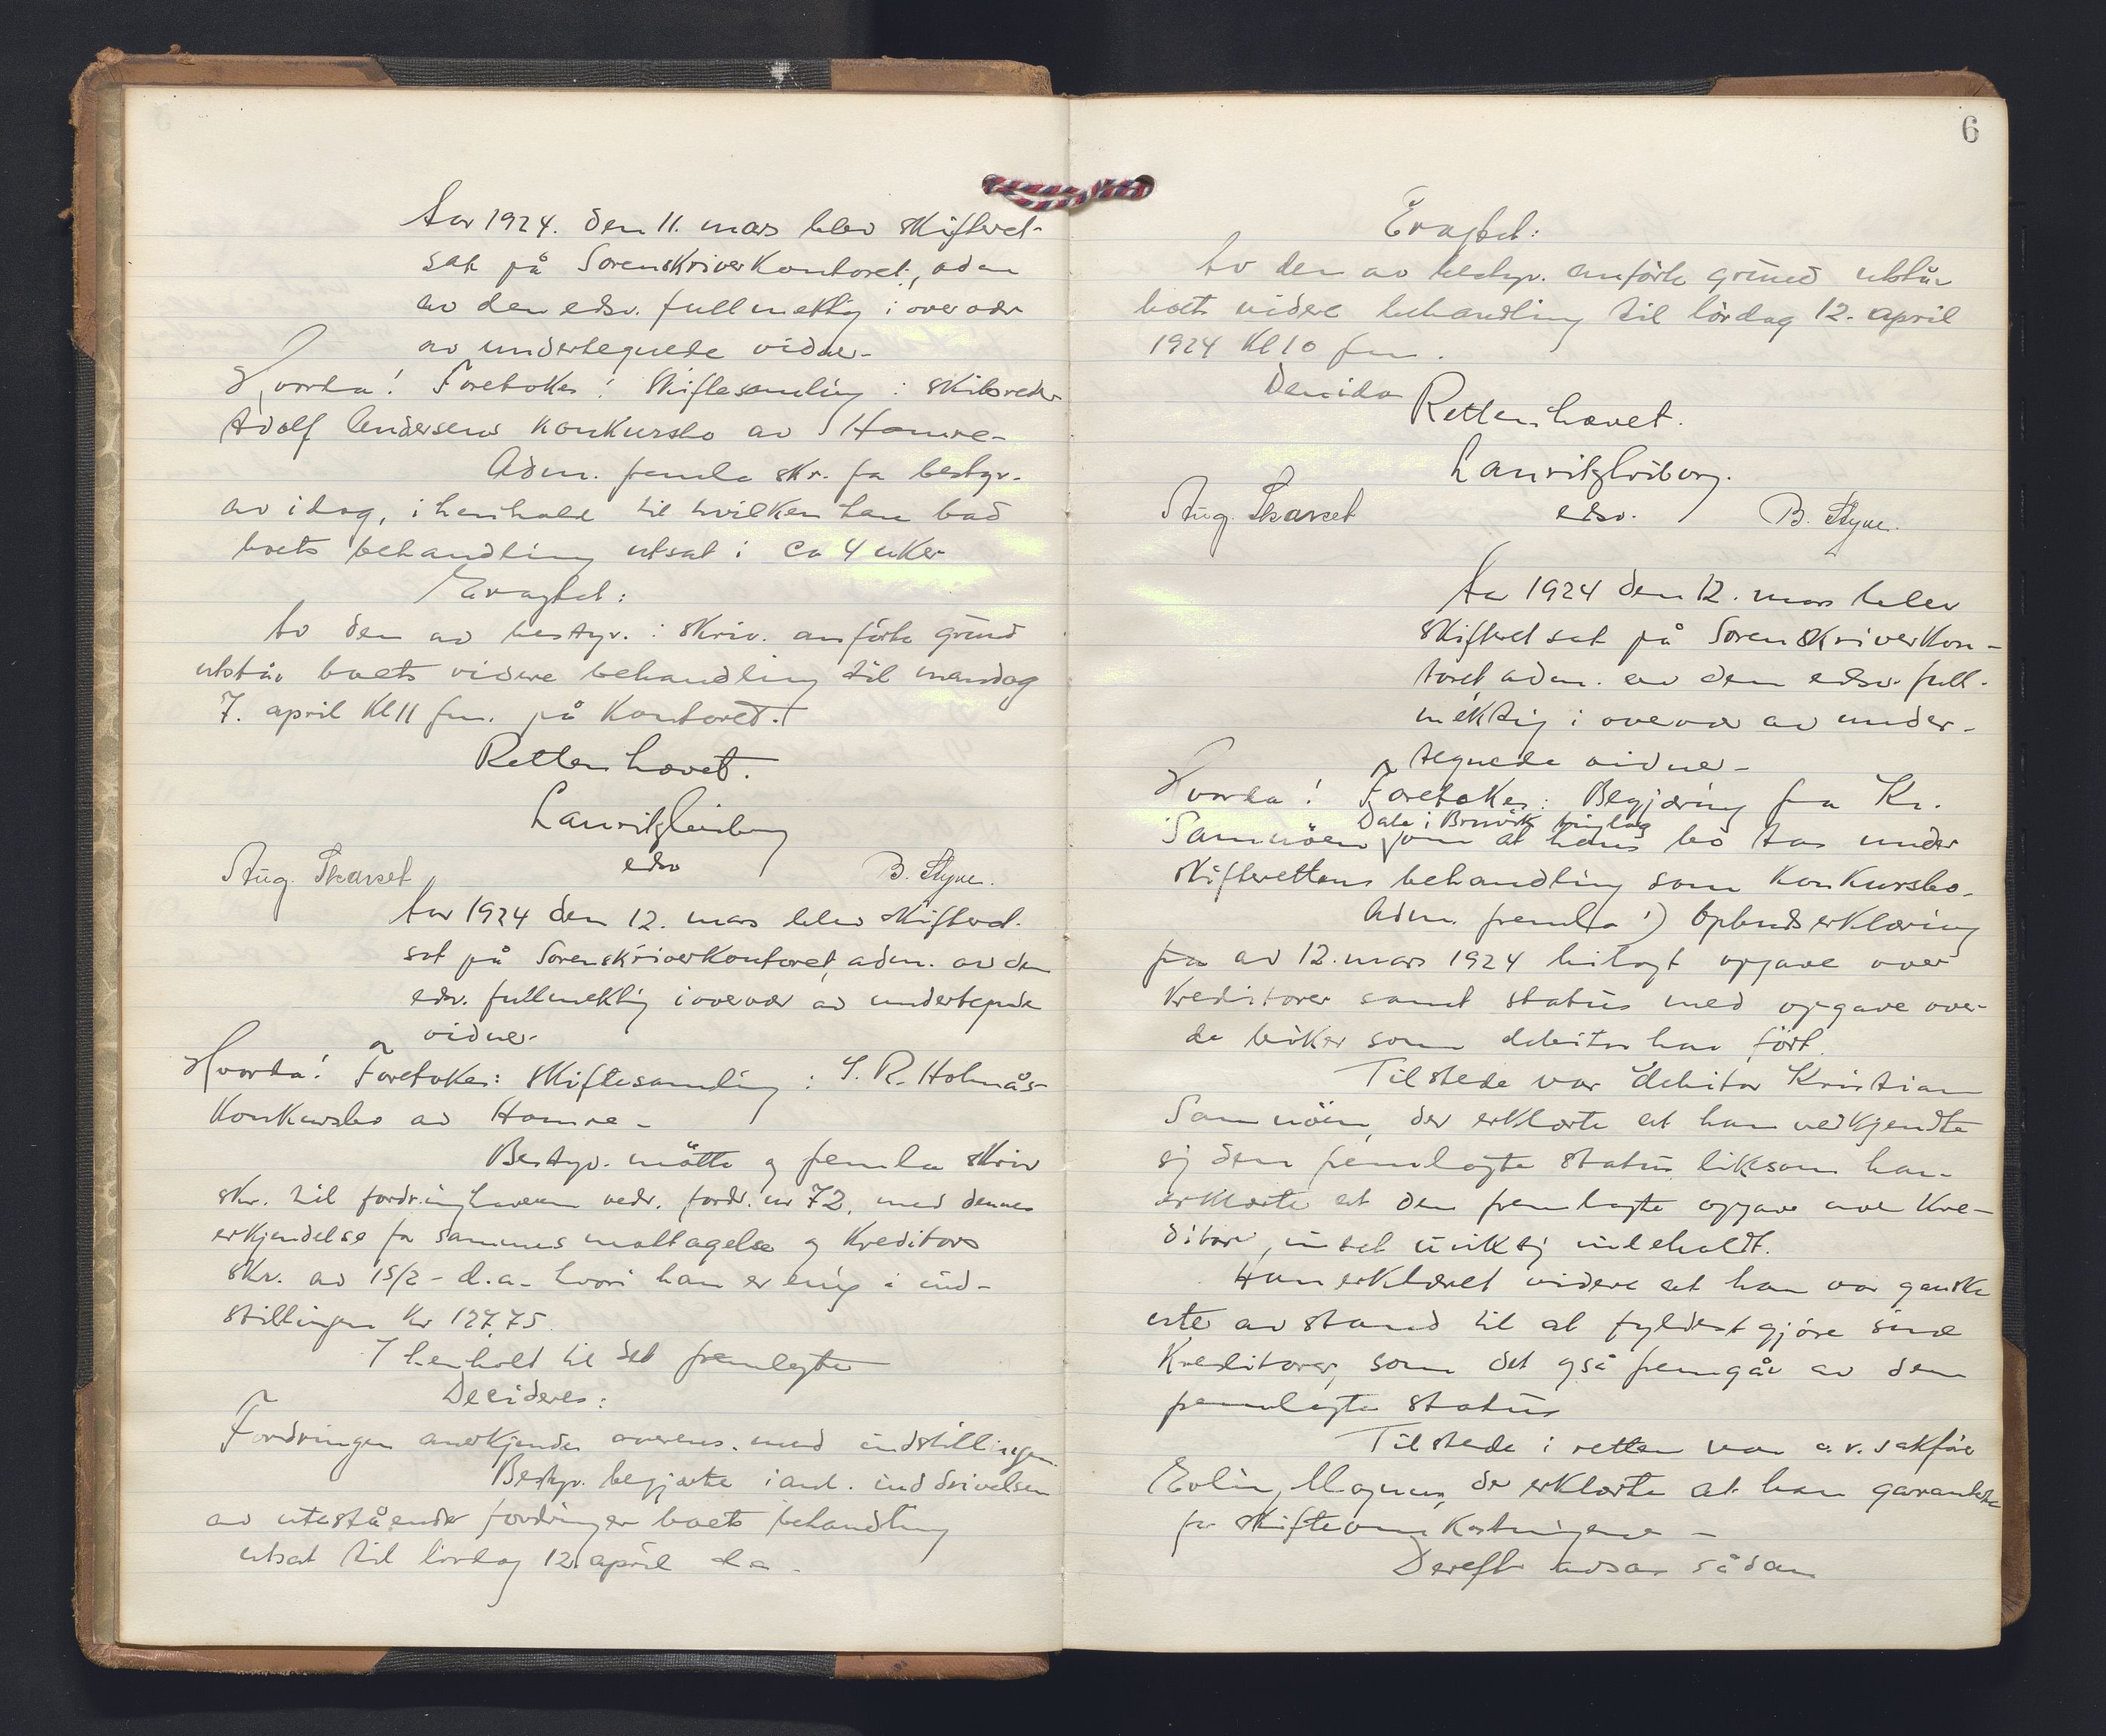 Aar 1924. den 11. mars blev skifteret
sat på Sorenskriverkontoret, adm
av den edsv. fullmektig i overvær
av undertegnede vidner.
Hvorda! Foretokes: Skiftesamling i skibsreder
Adolf Andersens konkursbo av Hamre.
Adm. fremla skr. fra bestyr.
av idag, i henhold til hvilken han bad
boets behandling utsat i ca 4 uker
Eragtet:
Av den av bestyr. i skriv. anförte grund
utstår boets videre behandling til mandag
7. april kl 11 fm. på kontoret.
Retten hævet.
edsv
Aug. Skarset B. Styve.
Aar 1924 den 12. mars blev skifteret
sat på Sorenskriverkontoret, adm. av den
edsv. fullmektig i overvær av undertegnede
vidner.
Hvorda! Foretokes: Skiftesamling i S. R. Holmås
konkursbo av Hamre.
Bestyr. mötte og fremla skriv
skr. til fordringhaveren vedr. fordr. nr 72, med dennes
erkjendelse for sammes mottagelse og kreditors
skr. av 15/2 - d.a. hvori han er enig i ind-
stillingen kr 127,75.
I henhold til det fremlagte
Decideres:
Fordringen anerkjendes overens. med indstillingen.
Bestyr. begjærte i anl. inddrivelsen
av utestående fordringer boets behandling
utsat til lördag 12. april d.a.
6
Eragtet:
Av den av bestyr. anförte grund utstår
boets videre behandling til lördag 12. april
1924 kl 10 fm.
Retten hævet.
edsv.
Aug. Skarset B. Styve.
Aar 1924 den 12. mars blev
skifteret sat på Sorenskriverkon-
toret adm. av den edsv. full-
mektig i overvær av under-
tegnede vidner.
Hvorda! Foretokes: Begjæring fra Kr.
Dale i Bruvik tinglag
Samnöen om at hans bo tas under
skifterettens behandling som konkursbo.
Adm. fremla 1) Opbudserklæring
fra av 12. mars 1924 bilagt opgave over
kreditorer samt status med opgave over
de böker som debitor har fört.
Tilstede var debitor Kristian
Samnöen, der erklærte at han vedkjendte
sig den fremlagte status liksom han
erklærte at den fremlagte opgave over kre-
ditorer, intet uriktig indeholdt.
Han erklæret videre at han var ganske
ute av stand til at fyldestgjöre sine
kreditorer, som det også fremgår av den
fremlagte status
Tilstede i retten var o.r. sakförer
Magnus, der erklærte at han garanterte
for skifteomkostningene -
Derefter avsaes sådan